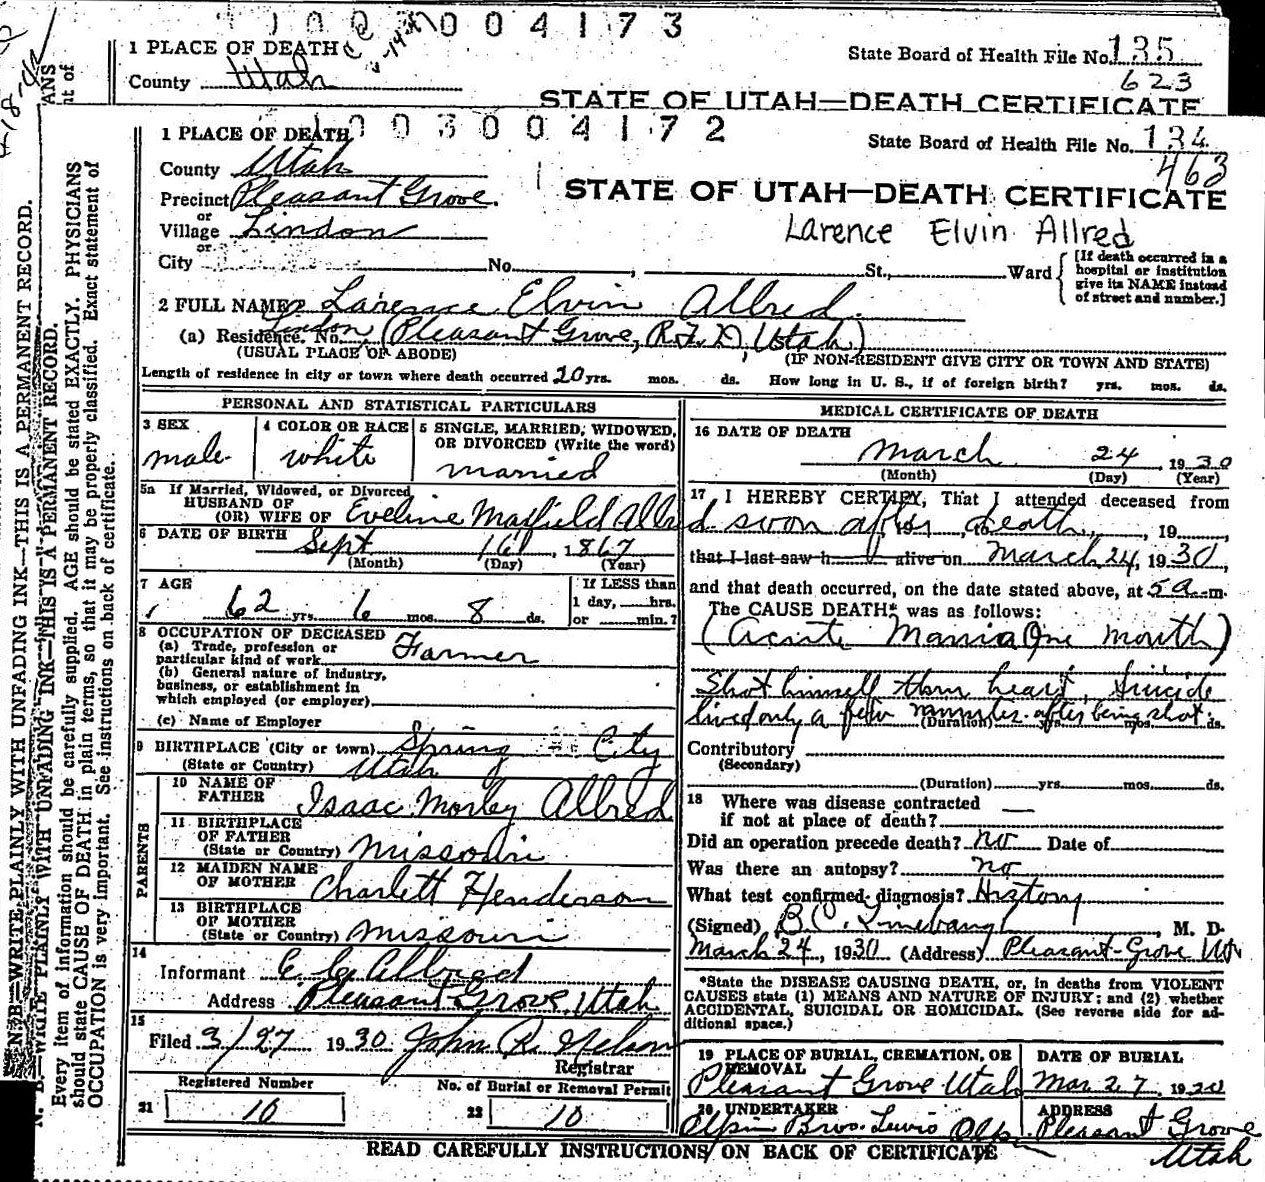 1003004173
1 PLACE OF DEATH
State Board of Health File No. 135
County Utah
623
STATE OF UTAH—DEATH CERTIFICATE
1003004172
1 PLACE OF DEATH
State Board of Health File No. 134
463
County Utah
STATE OF UTAH—DEATH CERTIFICATE
Precinct Pleasant Grove.
or
Village Lindon
Larence Elvin Allred
or
City No. , St., Ward
[If death occurred in a hospital or institution give its NAME instead of street and number.]
2 FULL NAME Larence Elvin Allred.
(a) Residence. No. Lindon (Pleasant Grove, R.F.D, Utah)
(USUAL PLACE OF ABODE) (IF NON-RESIDENT GIVE CITY OR TOWN AND STATE)
Length of residence in city or town where death occurred 20 yrs. mos. ds. How long in U. S., if of foreign birth? yrs. mos. ds.
PERSONAL AND STATISTICAL PARTICULARS
3 SEX
male
4 COLOR OR RACE
white
5 SINGLE, MARRIED, WIDOWED,
OR DIVORCED (Write the word)
married
5a If Married, Widowed, or Divorced
HUSBAND OF
(OR) WIFE OF Eveline Mayfield Allred
6 DATE OF BIRTH Sept 16, 1867
(Month) (Day) (Year)
7 AGE
62 yrs. 6 mos. 8 ds.
If LESS than
1 day, hrs.
or min.?
8 OCCUPATION OF DECEASED
(a) Trade, profession or
particular kind of work Farmer
(b) General nature of industry,
business, or establishment in
which employed (or employer)
(c) Name of Employer
9 BIRTHPLACE (City or town) Spring City
(State or Country) Utah
PARENTS
10 NAME OF
FATHER Isaac Morley Allred
11 BIRTHPLACE
OF FATHER
(State or Country) Missouri
12 MAIDEN NAME
OF MOTHER Charlett Henderson
13 BIRTHPLACE
OF MOTHER
(State or Country) Missouri
14
Informant Allred
Address Pleasant Grove, Utah
15
Filed 3/27 1930 John R. Nelson
Registrar
Registered Number
21 10
No. of Burial or Removal Permit
22 10
MEDICAL CERTIFICATE OF DEATH
16 DATE OF DEATH
March 24, 1930
(Month) (Day) (Year)
17 I HEREBY CERTIFY, That I attended deceased from
soon after death, 19
that I last saw h alive on March 24, 1930,
and that death occurred, on the date stated above, at 5 a m.
The CAUSE DEATH* was as follows:
(Acute Mania One month)
Shot himself thru heart, Suicide
lived only a few minutes after being shot.
(Duration) yrs. mos. ds.
Contributory
(Secondary)
(Duration) yrs. mos. ds.
18 Where was disease contracted
if not at place of death?
Did an operation precede death? no Date of
Was there an autopsy? no
What test confirmed diagnosis? History
(Signed) B.O. , M. D.
March 24, 1930 (Address) Pleasant Grove Ut
*State the DISEASE CAUSING DEATH, or, in deaths from VIOLENT
CAUSES state (1) MEANS AND NATURE OF INJURY; and (2) whether
ACCIDENTAL, SUICIDAL OR HOMICIDAL. (See reverse side for ad-
ditional space.)
19 PLACE OF BURIAL, CREMATION, OR
REMOVAL
Pleasant Grove Utah
DATE OF BURIAL
Mar 27, 1930
20 UNDERTAKER
Olpin Bros. Lewis Olpin
ADDRESS
Pleasant Grove
Utah
READ CAREFULLY INSTRUCTIONS ON BACK OF CERTIFICATE
N. B.—WRITE PLAINLY WITH UNFADING INK—THIS IS A PERMANENT RECORD.
Every item of information should be carefully supplied. AGE should be stated EXACTLY. PHYSICIANS
should state CAUSE OF DEATH in plain terms, so that it may be properly classified. Exact statement of
OCCUPATION is very important. See instructions on back of certificate.